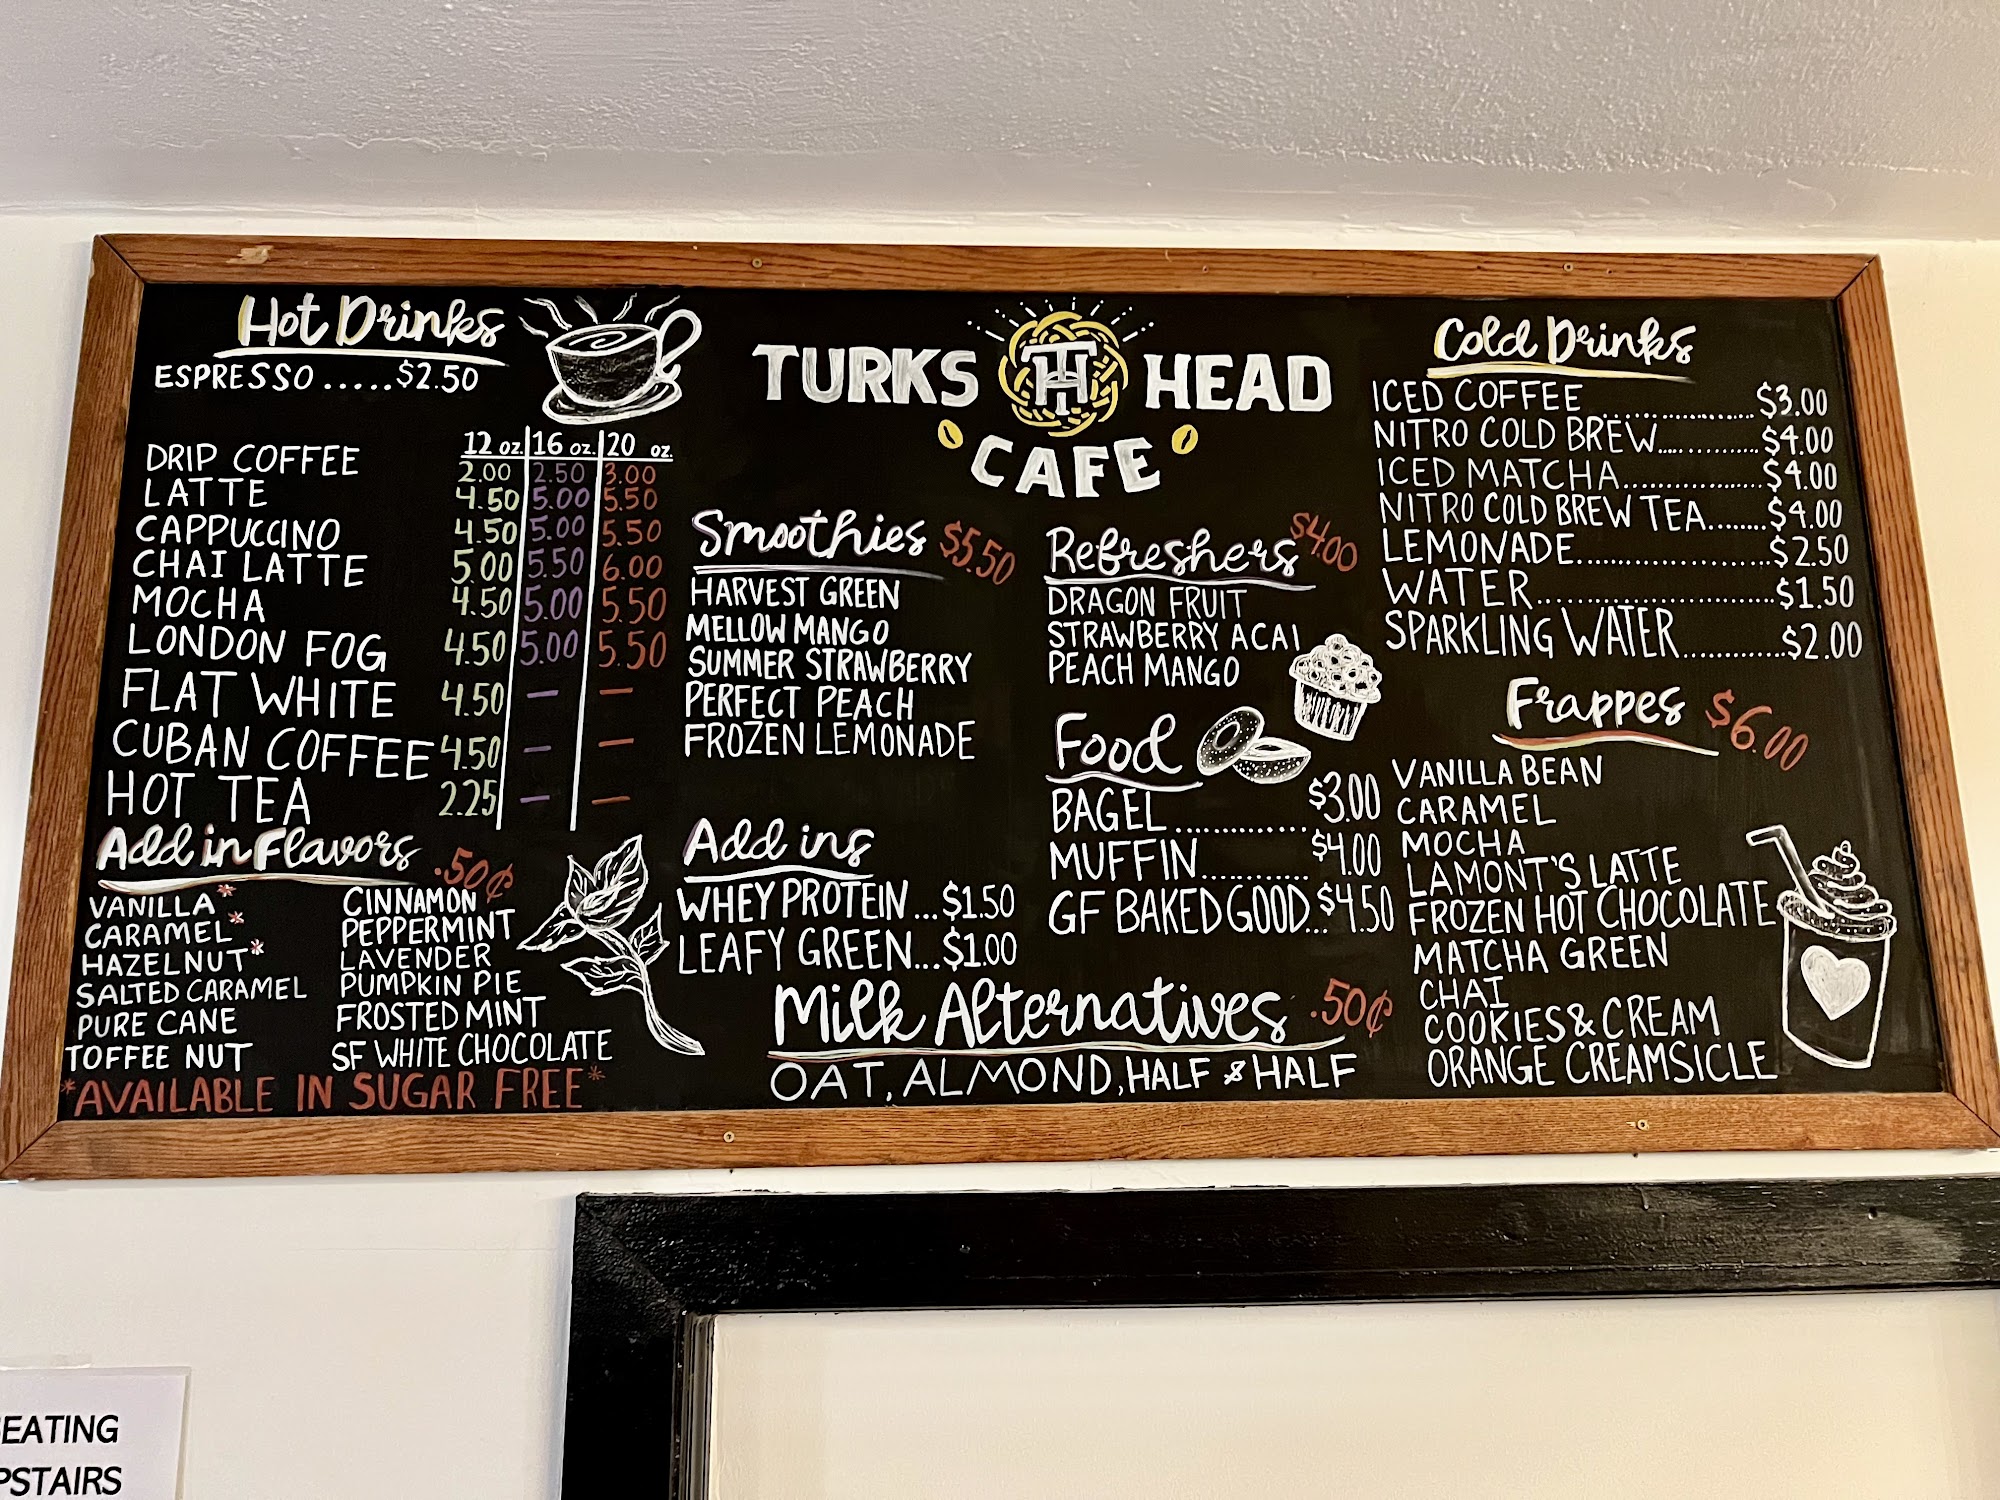 Hot Drinks
ESPRESSO.....$2.50
12 oz. 16 oz. 20 oz.
DRIP COFFEE 2.00 2.50 3.00
LATTE 4.50 5.00 5.50
CAPPUCCINO 4.50 5.00 5.50
CHAI LATTE 5.00 5.50 6.00
MOCHA 4.50 5.00 5.50
LONDON FOG 4.50 5.00 5.50
FLAT WHITE 4.50 — —
CUBAN COFFEE 4.50 — —
HOT TEA 2.25 — —
Add in Flavors .50¢
VANILLA*
CARAMEL*
HAZELNUT*
SALTED CARAMEL
PURE CANE
TOFFEE NUT
CINNAMON
PEPPERMINT
LAVENDER
PUMPKIN PIE
FROSTED MINT
SF WHITE CHOCOLATE
*AVAILABLE IN SUGAR FREE*
TURKS TH HEAD
CAFE
Smoothies $5.50
HARVEST GREEN
MELLOW MANGO
SUMMER STRAWBERRY
PERFECT PEACH
FROZEN LEMONADE
Add ins
WHEY PROTEIN...$1.50
LEAFY GREEN...$1.00
Refreshers $4.00
DRAGON FRUIT
STRAWBERRY ACAI
PEACH MANGO
Food
BAGEL.............$3.00
MUFFIN............$4.00
GF BAKED GOOD...$4.50
Milk Alternatives .50¢
OAT, ALMOND, HALF & HALF
Cold Drinks
ICED COFFEE..................$3.00
NITRO COLD BREW..............$4.00
ICED MATCHA..................$4.00
NITRO COLD BREW TEA........$4.00
LEMONADE........................$2.50
WATER.............................$1.50
SPARKLING WATER............$2.00
Frappes $6.00
VANILLA BEAN
CARAMEL
MOCHA
LAMONT'S LATTE
FROZEN HOT CHOCOLATE
MATCHA GREEN
CHAI
COOKIES & CREAM
ORANGE CREAMSICLE
EATING
PSTAIRS